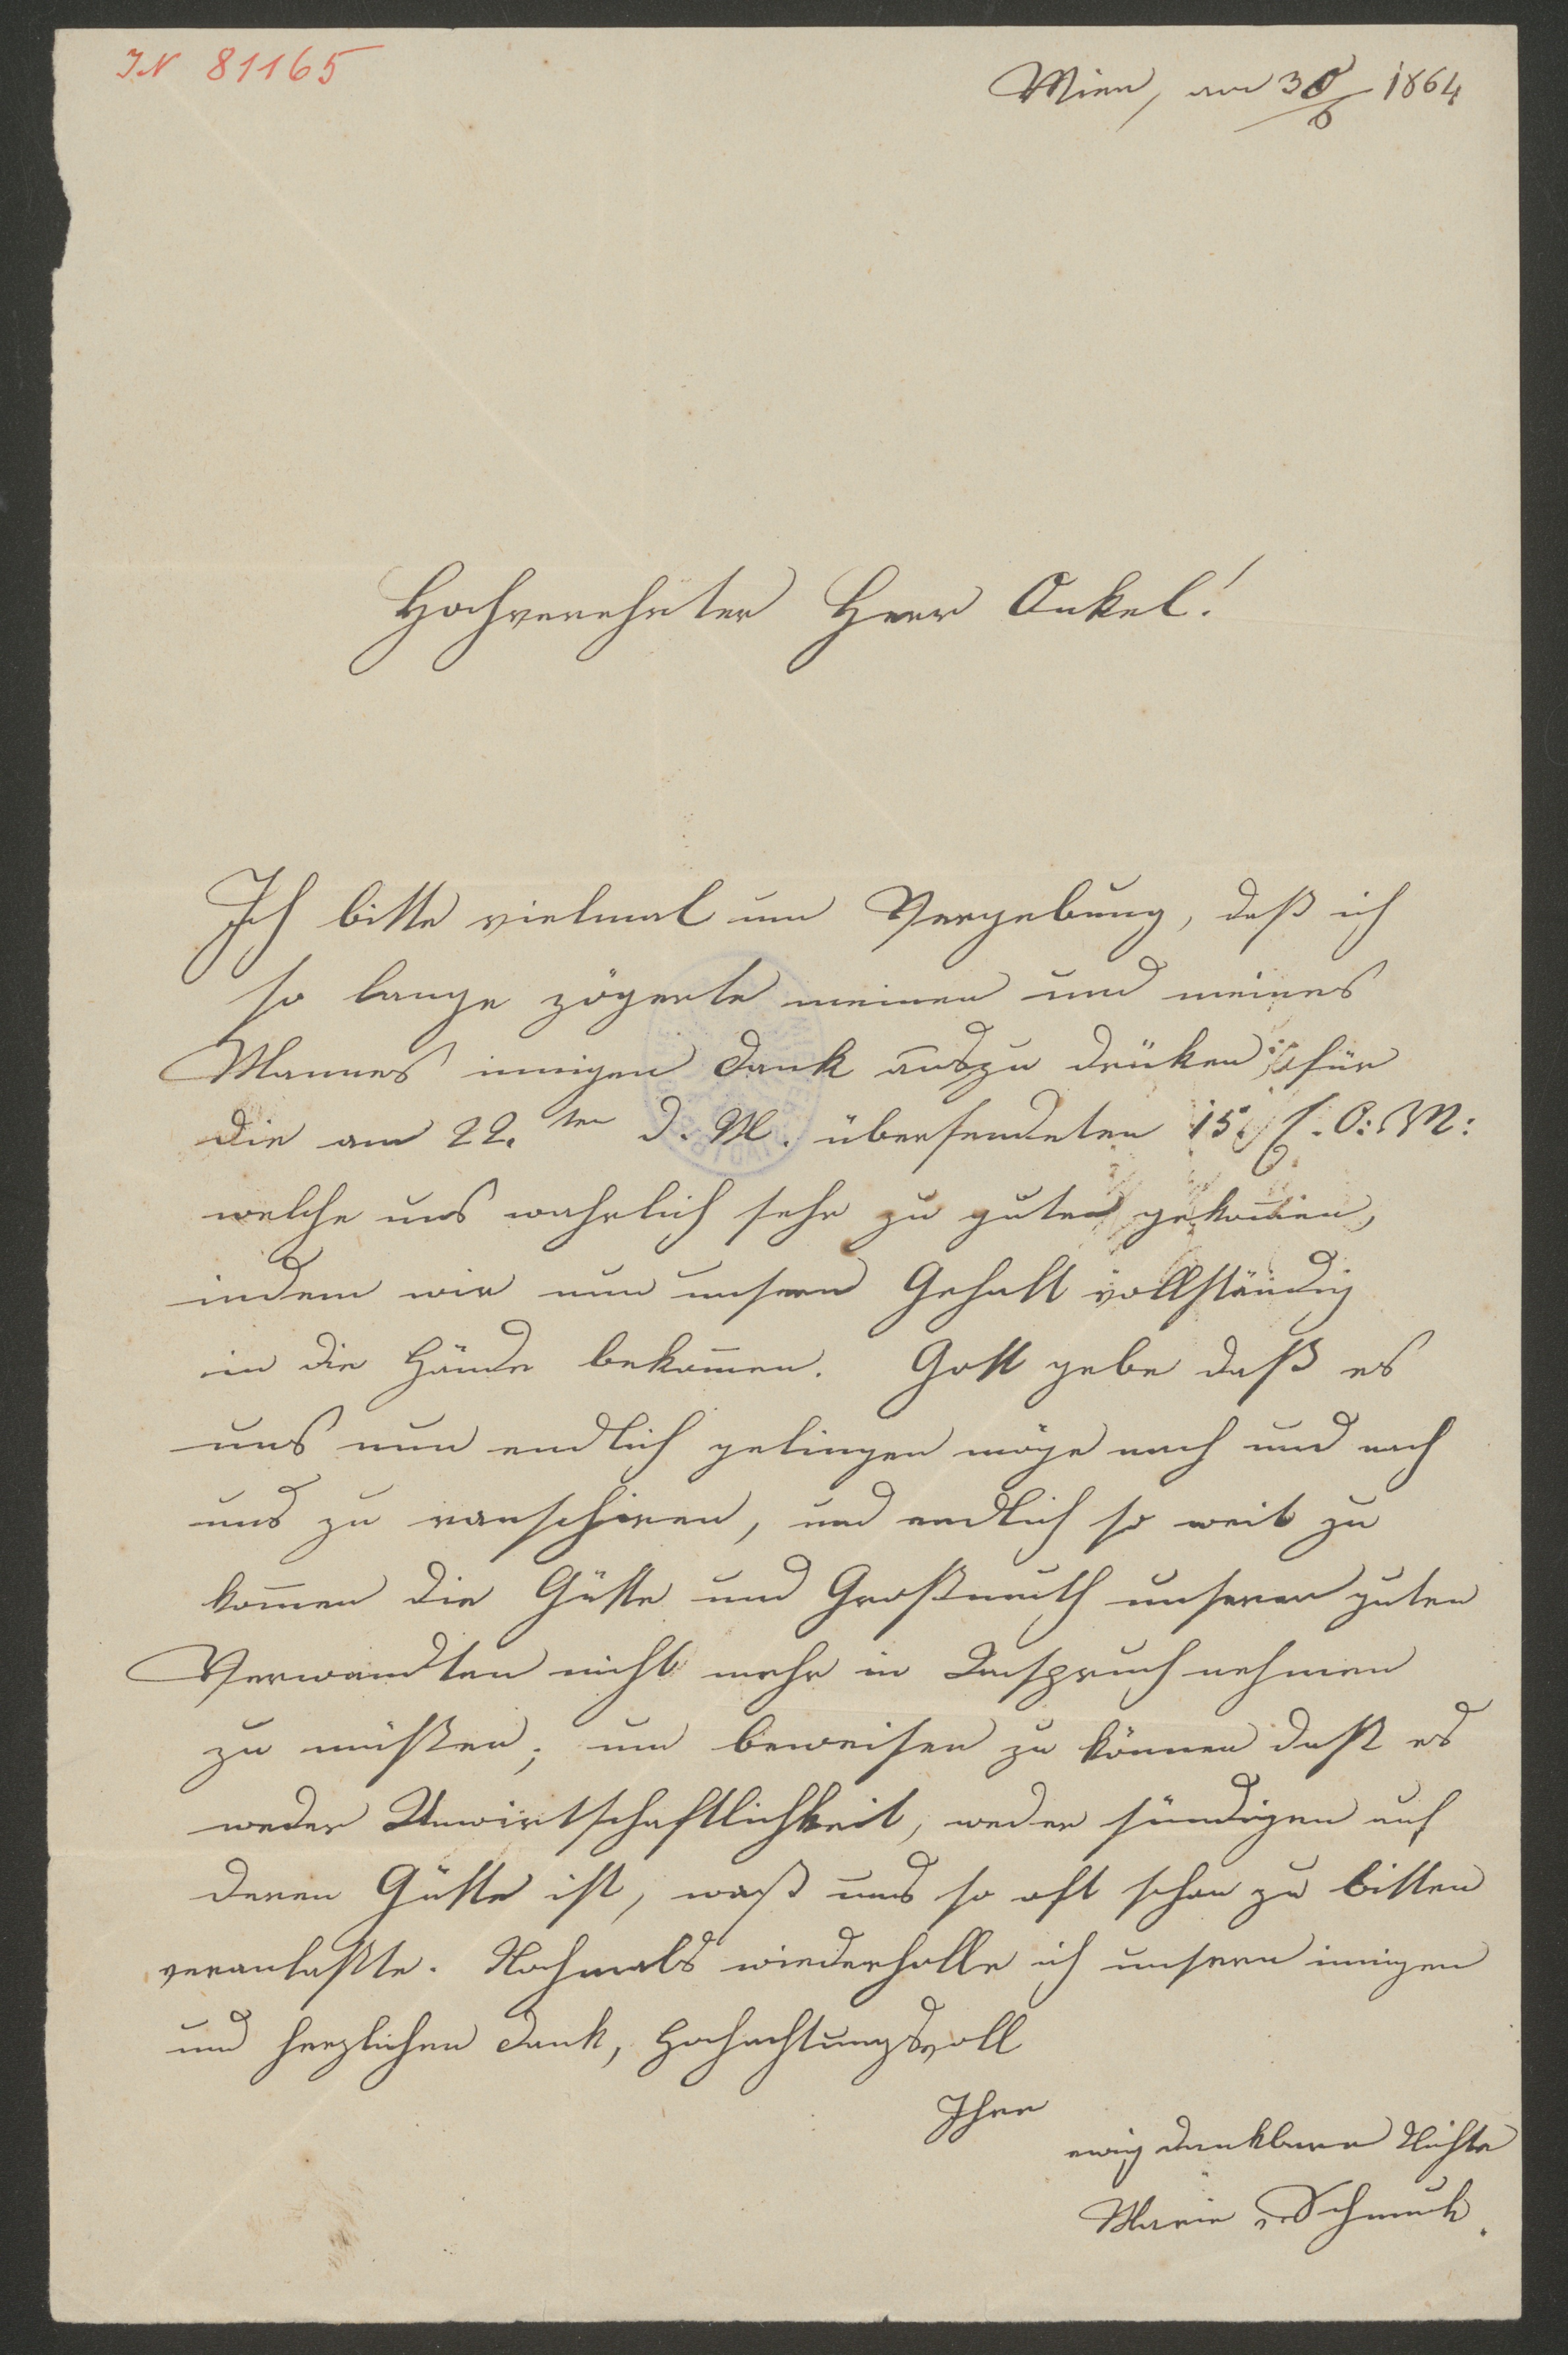 IN 81165
Wien, am 30/6 1864
Hochverehrter Herr Onkel!
Ich bitte vielmal um Vergebung, daß ich
so lange zögerte meinen und meines
Mannes innigen Dank auszu drüken für
die am 22.ten d. M. übersendeten 15 f. O: M:
welche uns wahrlich sehr zu guten gekom̅en,
indem wir nun unsern Gehalt vollständig
in die Hände bekom̅en. Gott gebe daß es
uns nun endlich gelingen möge nach und nach
uns zu ranschiren, und endlich so weit zu
kom̅en die Gütte und Großmuth unserer guten
Verwandten nicht mehr in Anspruch nehmen
zu müßen; um beweisen zu können daß es
weder Unwirtschaftlichkeit, weder sündigen auf
deren Gütte ist, waß uns so oft schon zu bitten
veranlaßte. Nochmals wiederholle ich unsern innigen
und herzlichen Dank, Hochachtungsvoll
Ihre
ewig dankbare Nichte
Marie Schmuk.